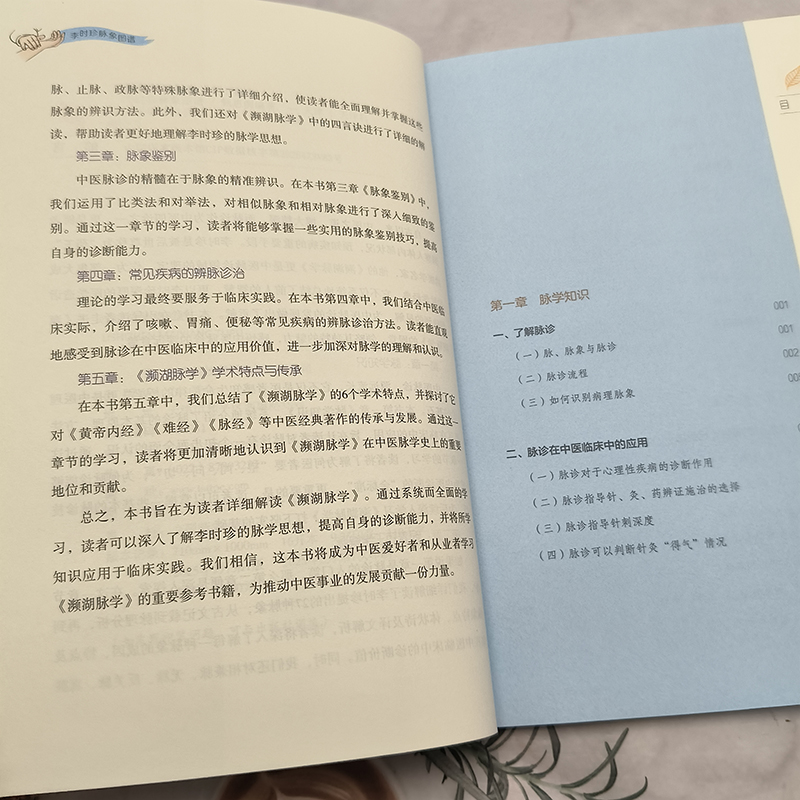 李时珍脉象图谱
脉、止脉、政脉等特殊脉象进行了详细介绍，使读者能全面理解并掌握这些
脉象的辨识方法。此外，我们还对《濒湖脉学》中的四言诀进行了详细的解
读、帮助读者更好地理解李时珍的脉学思想。
第三章：脉象鉴别
中医脉诊的精髓在于脉象的精准辨识。在本书第三章《脉象鉴别》中，
我们运用了比类法和对举法，对相似脉象和相对脉象进行了深入细致的鉴
别。通过这一章节的学习，读者将能够掌握一些实用的脉象鉴别技巧，提高
自身的诊断能力。
第四章：常见疾病的辨脉诊治
理论的学习最终要服务于临床实践。在本书第四章中，我们结合中医临
床实际，介绍了咳嗽、胃痛、便秘等常见疾病的辨脉诊治方法。读者能直观
地感受到脉诊在中医临床中的应用价值，进一步加深对脉学的理解和认识。
第五章：《濒湖脉学》学术特点与传承
在本书第五章中，我们总结了《濒湖脉学》的6个学术特点，并探讨了它
对《黄帝内经》《难经》《脉经》等中医经典著作的传承与发展。通过这一
章节的学习，读者将更加清晰地认识到《濒湖脉学》在中医脉学史上的重要
地位和贡献。
总之，本书旨在为读者详细解读《濒湖脉学》。通过系统而全面的学
习，读者可以深入了解李时珍的脉学思想，提高自身的诊断能力，并将所学
知识应用于临床实践。我们相信，这本书将成为中医爱好者和从业者学习
《濒湖脉学》的重要参考书籍，为推动中医事业的发展贡献一份力量。
目
第一章 脉学知识
001
一、了解脉诊
001
（一）脉、脉象与脉诊
002
（二）脉诊流程
（三）如何识别病理脉象
二、脉诊在中医临床中的应用
（一）脉诊对于心理性疾病的诊断作用
（二）脉诊指导针、灸、药辨证施治的选择
（三）脉诊指导针刺深度
（四）脉诊可以判断针灸“得气”情况